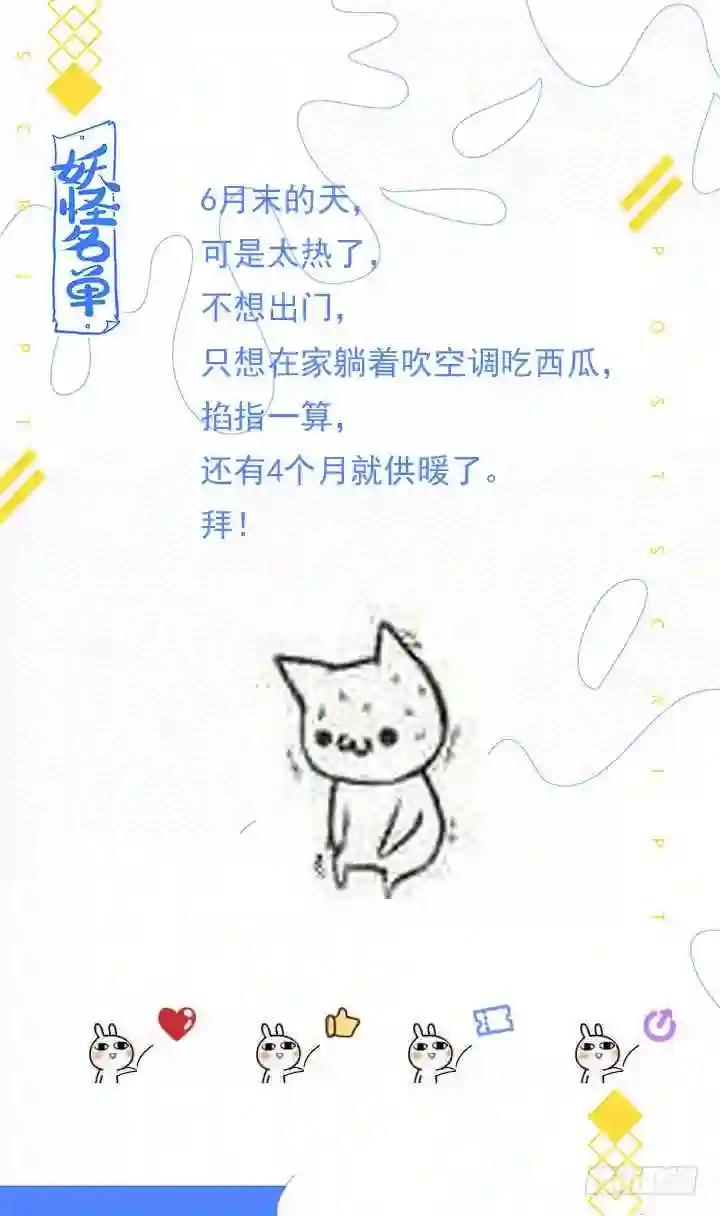 妖怪名单
6月末的天，
可是太热了，
不想出门，
只想在家躺着吹空调吃西瓜，
掐指一算，
还有4个月就供暖了。
拜！
POSTSCRIPT